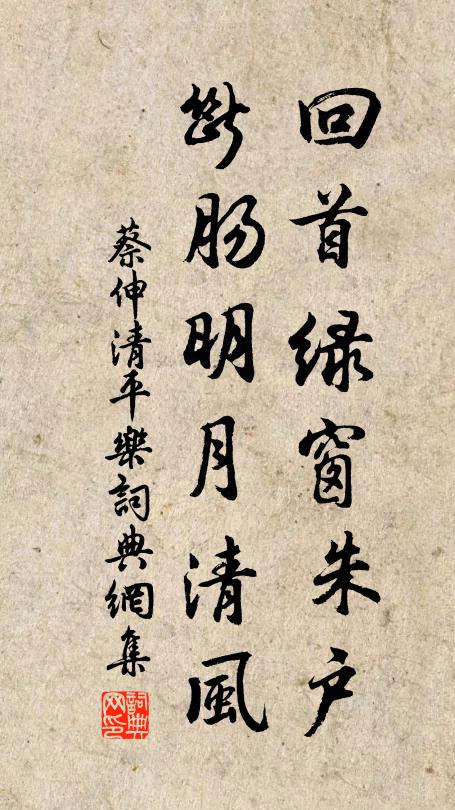 回首绿窗朱户
断肠明月清风
蔡伸清平樂詞典網集
詞典网印